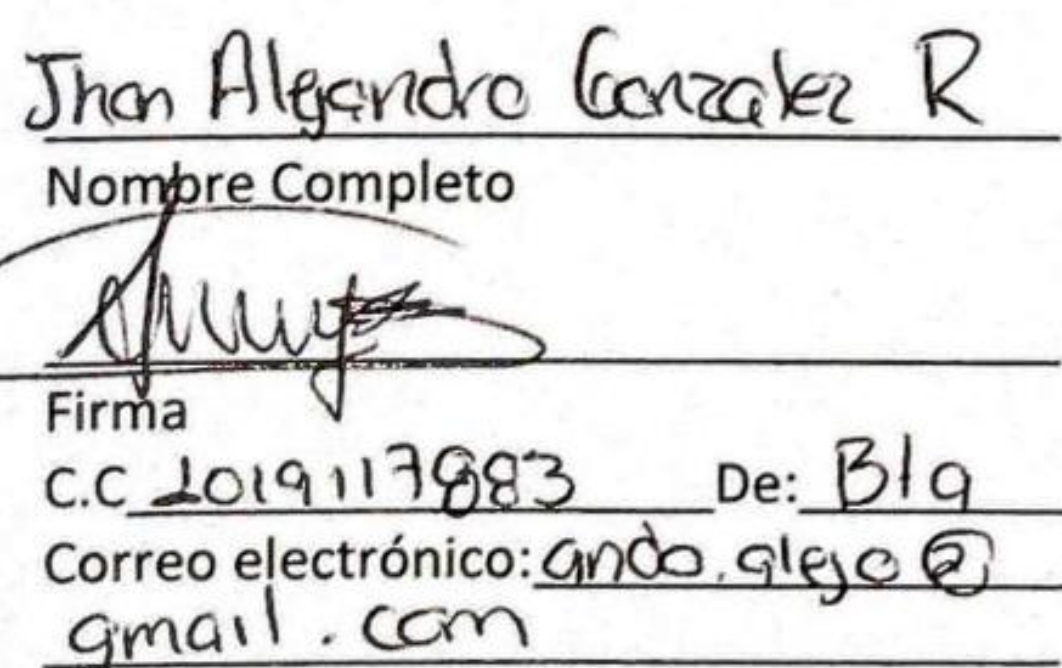 Jhon Alejandro Gonzalez R
Nombre Completo
Firma
C.C 1019117883 De: B/a
Correo electrónico: ando.alejo@
gmail.com